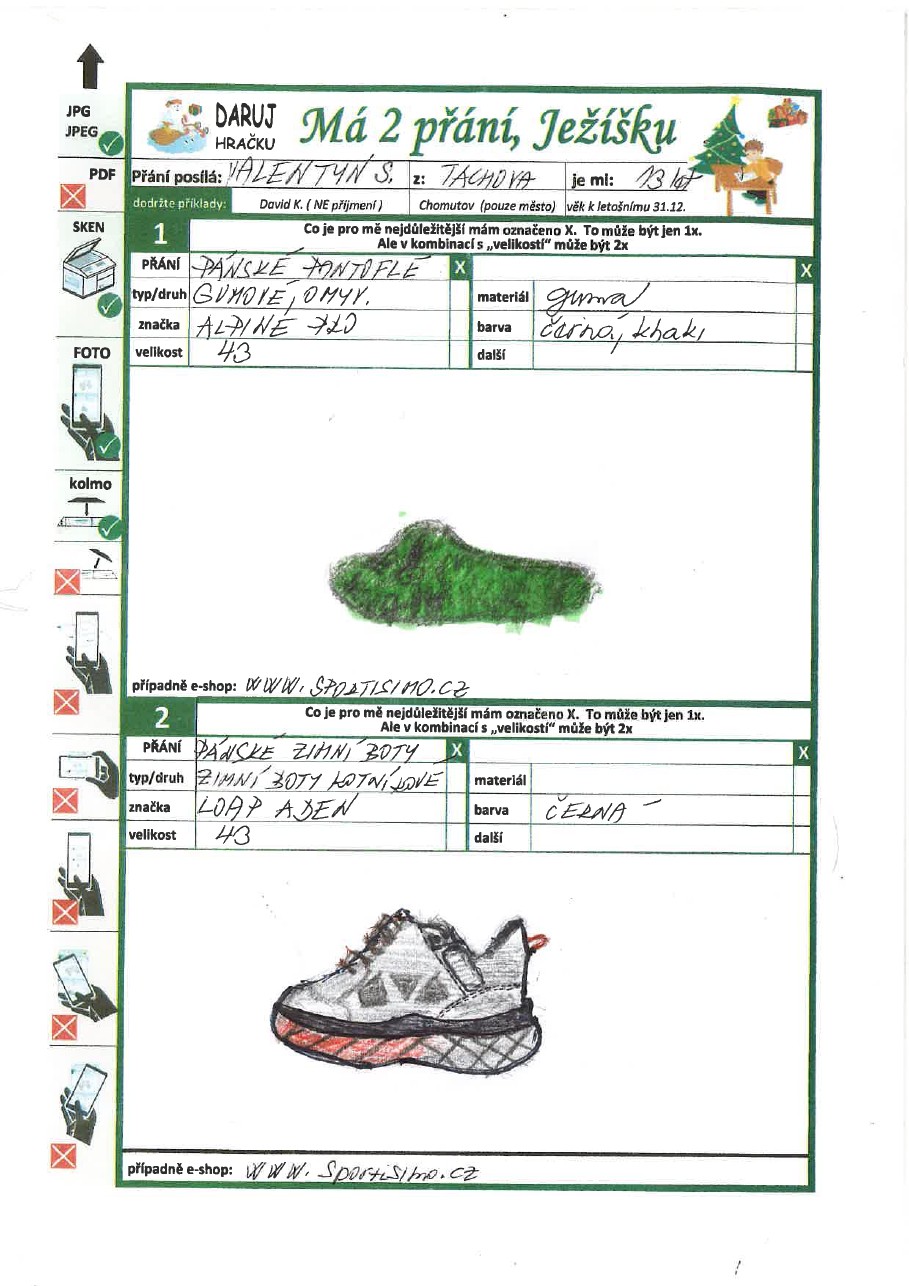 JPG
JPEG
PDF
SKEN
FOTO
kolmo
DARUJ
HRAČKU
Má 2 přání, Ježíšku
Přání posílá: VALENTYN S. z: TACHOVA je mi: 13 let
dodržte příklady: David K. ( NE příjmení ) Chomutov (pouze město) věk k letošnímu 31.12.
1 Co je pro mě nejdůležitější mám označeno X. To může být jen 1x.
Ale v kombinací s „velikostí“ může být 2x
PŘÁNÍ PÁNSKÉ PANTOFLE X X
typ/druh GUMOVÉ, OMYV. materiál guma
značka ALPINE PRO barva černá, khaki
velikost 43 další
případně e-shop: WWW.SPORTISIMO.CZ
2 Co je pro mě nejdůležitější mám označeno X. To může být jen 1x.
Ale v kombinací s „velikostí“ může být 2x
PŘÁNÍ PÁNSKÉ ZIMNÍ BOTY X X
typ/druh ZIMNÍ BOTY KOTNÍKOVÉ materiál
značka LOAP ADEN barva ČERNÁ
velikost 43 další
případně e-shop: WWW.Sportisimo.cz